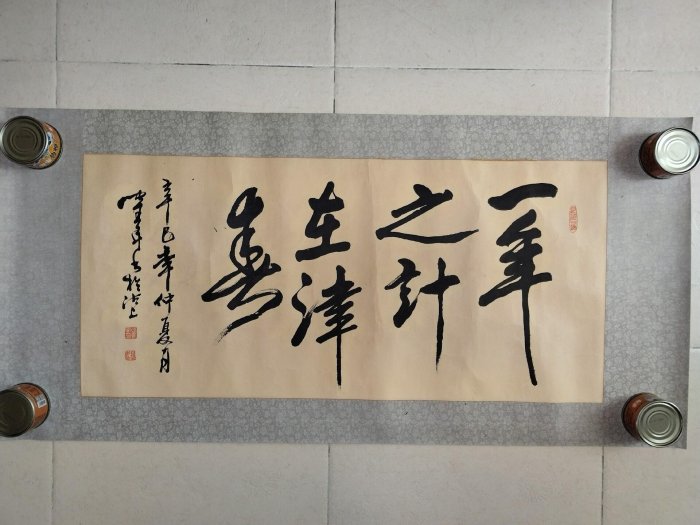 一年
之計
在津
春
辛巳年仲夏月
書於沽上